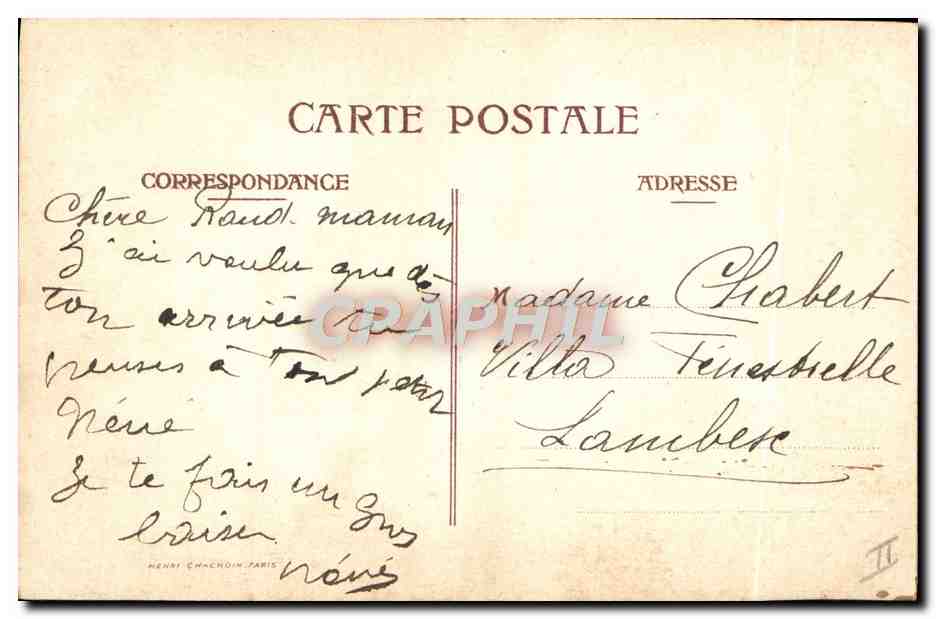 CARTE POSTALE
CORRESPONDANCE
Chère Rand-maman
J'ai voulu que dès
ton arrivée tu
penses à Ton petit
Néné
Je te fais un gros
baiser
Néné
HENRI CHACHOIN.PARIS
ADRESSE
Madame Chabert
Villa Fénestrelle
Lambesc
II
CPAPHIL